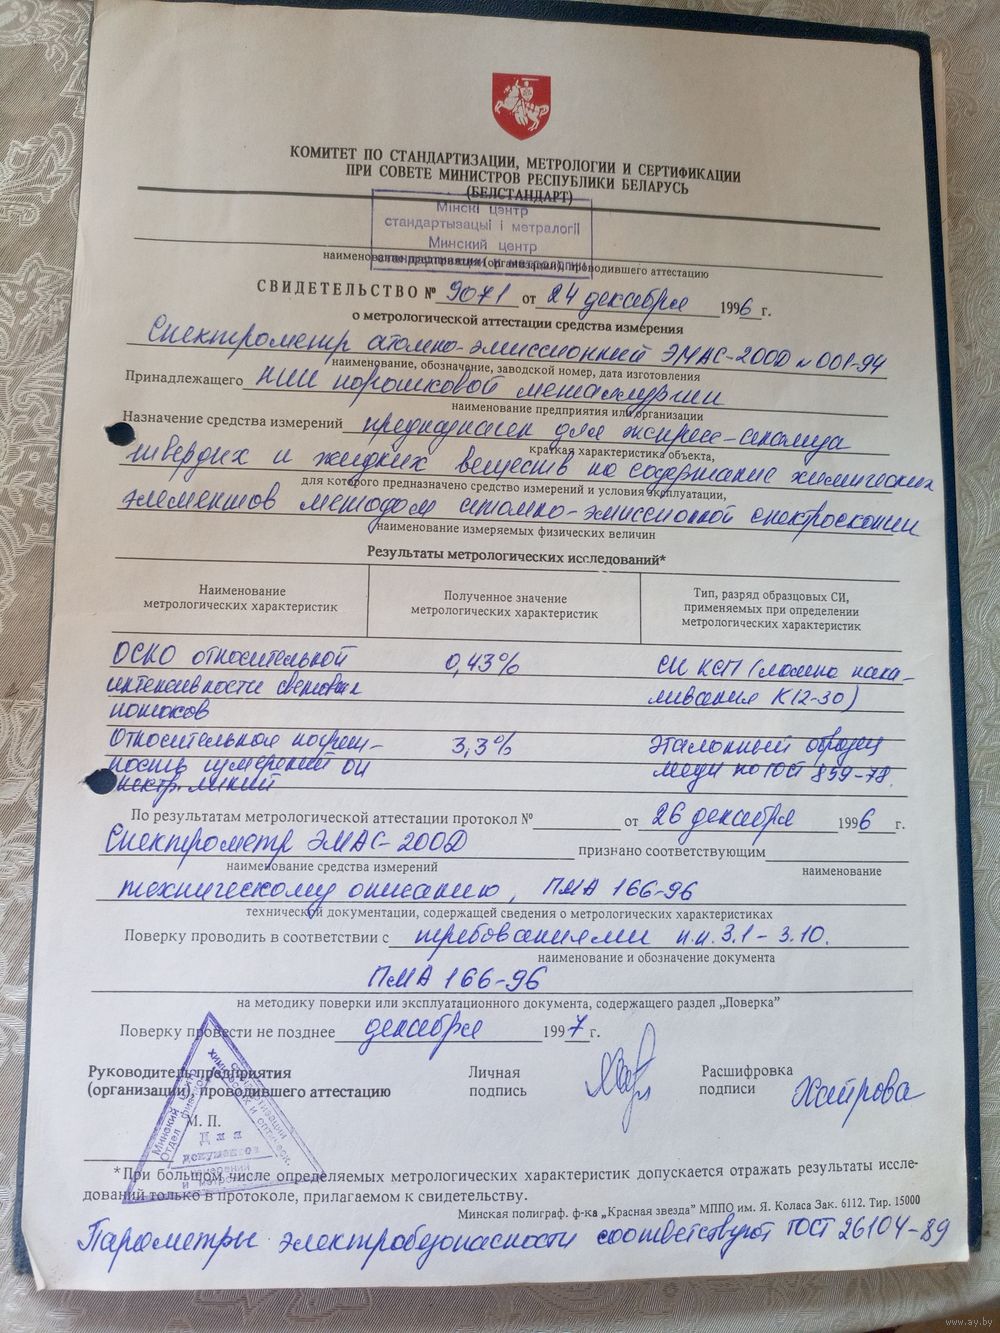 КОМИТЕТ ПО СТАНДАРТИЗАЦИИ, МЕТРОЛОГИИ И СЕРТИФИКАЦИИ
ПРИ СОВЕТЕ МИНИСТРОВ РЕСПУБЛИКИ БЕЛАРУСЬ
(БЕЛСТАНДАРТ)
Мінскі цэнтр
стандартызацыі і метралогіі
Минский центр
стандартизации и метрологии
наименование предприятия (организации), проводившего аттестацию
СВИДЕТЕЛЬСТВО № 9071 от 24 декабря 1996 г.
о метрологической аттестации средства измерения
Спектрометр атомно-эмиссионный ЭМАС-200D N 001-94
наименование, обозначение, заводской номер, дата изготовления
Принадлежащего НИИ порошковой металлургии
наименование предприятия или организации
Назначение средства измерений предназначен для экспресс-анализа
краткая характеристика объекта,
твердых и жидких веществ на содержание химических
для которого предназначено средство измерений и условия эксплуатации,
элементов методом атомно-эмиссионной спектроскопии
наименование измеряемых физических величин
Результаты метрологических исследований*
Наименование метрологических характеристик
Полученное значение метрологических характеристик
Тип, разряд образцовых СИ, применяемых при определении метрологических характеристик
ОСКО относительной 0,43% СИ КСП (лампа нака-
интенсивности световых ливания К 12-30)
потоков
Относительная погреш- 3,3% Эталонный образец
ность измерений ОИ меди по ГОСТ 859-78.
спектр. линий
По результатам метрологической аттестации протокол № от 26 декабря 1996 г.
Спектрометр ЭМАС-200D признано соответствующим
наименование средства измерений наименование
техническому описанию, ПМА 166-96
технической документации, содержащей сведения о метрологических характеристиках
Поверку проводить в соответствии с требованиями п.п. 3.1 - 3.10.
наименование и обозначение документа
ПМА 166-96
на методику поверки или эксплуатационного документа, содержащего раздел „Поверка”
Поверку провести не позднее декабря 1997 г.
Руководитель предприятия
(организации), проводившего аттестацию
Личная
подпись
Расшифровка
подписи
Хаирова
М. П.
Для
документов
*При большом числе определяемых метрологических характеристик допускается отражать результаты иссле-
дований только в протоколе, прилагаемом к свидетельству.
Минская полиграф. ф-ка „Красная звезда” МППО им. Я. Коласа Зак. 6112. Тир. 15000
Параметры электробезопасности соответствуют ГОСТ 26104-89
www.ay.by